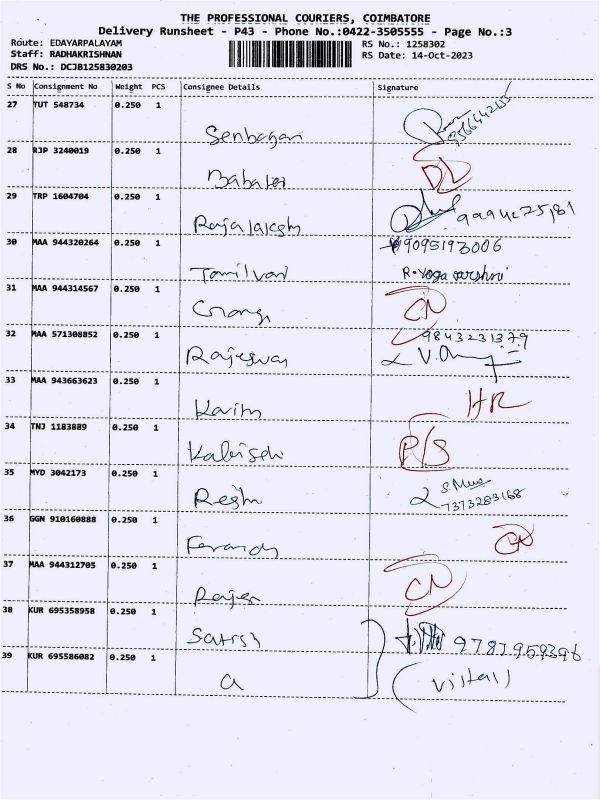 THE PROFESSIONAL COURIERS, COIMBATORE
Delivery Runsheet - P43 - Phone No.:0422-3505555 - Page No.:3
Route: EDAYARPALAYAM RS No.: 1258302
Staff: RADHAKRISHNAN RS Date: 14-Oct-2023
DRS No.: DCJB125830203
S No Consignment No Weight PCS Consignee Details Signature
27 TUT 548734 0.250 1
Senbagan
28 RJP 3240019 0.250 1
DL
29 TRP 1604704 0.250 1
Rajalaksh
30 MAA 944320264 0.250 1 9095193006
Tamilvani R.Yoga darshni
31 MAA 944314567 0.250 1
CN
32 MAA 571308852 0.250 1 9843231379
Rajeswar
33 MAA 943663623 0.250 1
Karim HR
34 TNJ 1183889 0.250 1
P/S
35 MYD 3042173 0.250 1
Reshm 7373283168
36 GGN 910160888 0.250 1
CN
37 MAA 944312705 0.250 1
Rajesh CN
38 KUR 695358958 0.250 1
Satish 9787959396
39 KUR 695586082 0.250 1
a